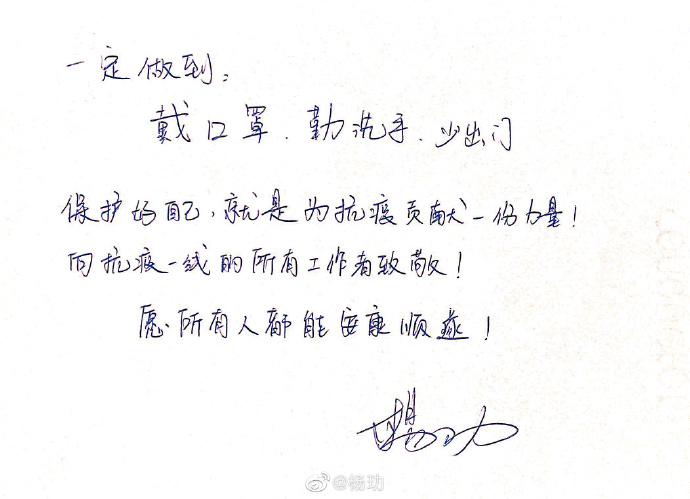 一定做到:
戴口罩、勤洗手、少出门
保护好自己,就是为抗疫贡献一份力量!
向抗疫一线的所有工作者致敬!
愿所有人都能安康顺遂!
杨玏
@杨玏